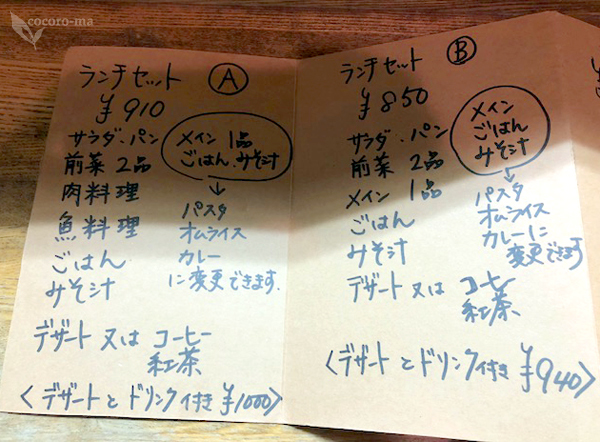 cocoro-ma
ランチセット Ⓐ
¥910
サラダ・パン
前菜 2品
肉料理
魚料理
ごはん
みそ汁
メイン 1品
ごはん・みそ汁
↓
パスタ
オムライス
カレー
に変更できます.
デザート 又は コーヒー
紅茶
〈デザートとドリンク付き ¥1000〉
ランチセット Ⓑ
¥850
サラダ・パン
前菜 2品
メイン 1品
ごはん
みそ汁
メイン
ごはん
みそ汁
↓
パスタ
オムライス
カレーに
変更できます
デザート 又は コーヒー
紅茶
〈デザートとドリンク付き ¥940〉